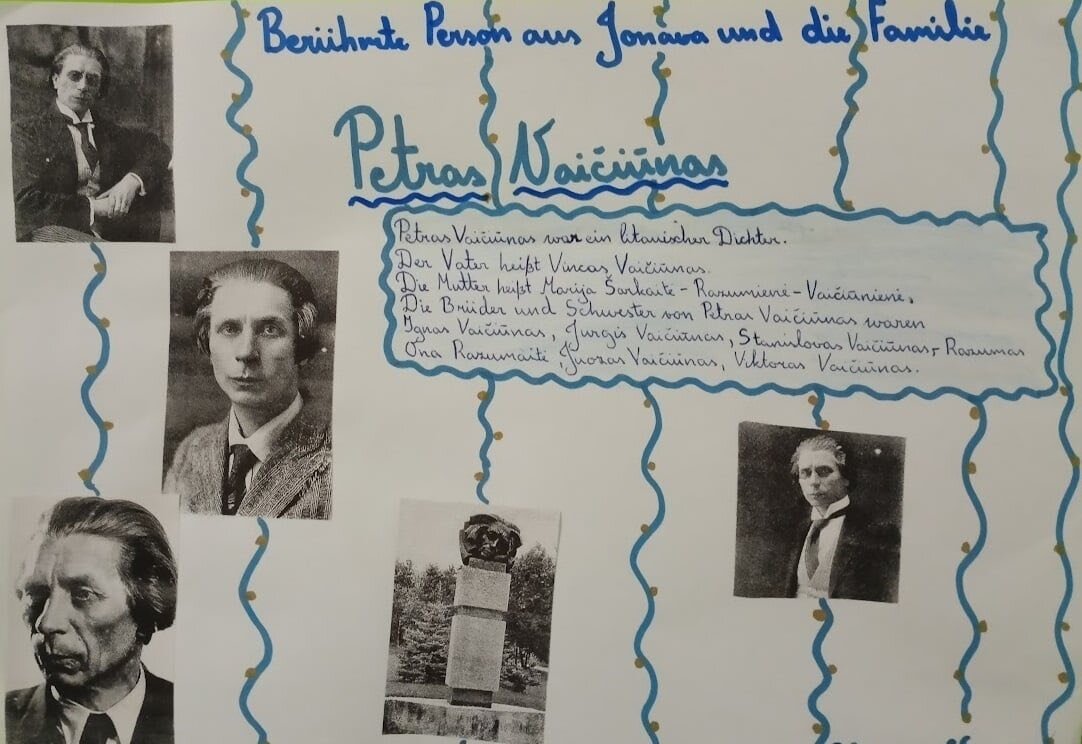 Berühmte Person aus Jonava und die Familie
Petras Vaičiūnas
Petras Vaičiūnas war ein litauischer Dichter.
Der Vater heißt Vincas Vaičiūnas.
Die Mutter heißt Marija Šarkaitė - Razumienė - Vaičiūnienė.
Die Brüder und Schwester von Petras Vaičiūnas waren
Ignas Vaičiūnas, Jurgis Vaičiūnas, Stanislovas Vaičiūnas, - Razumas
Ona Razumaitė, Juozas Vaičiūnas, Viktoras Vaičiūnas.